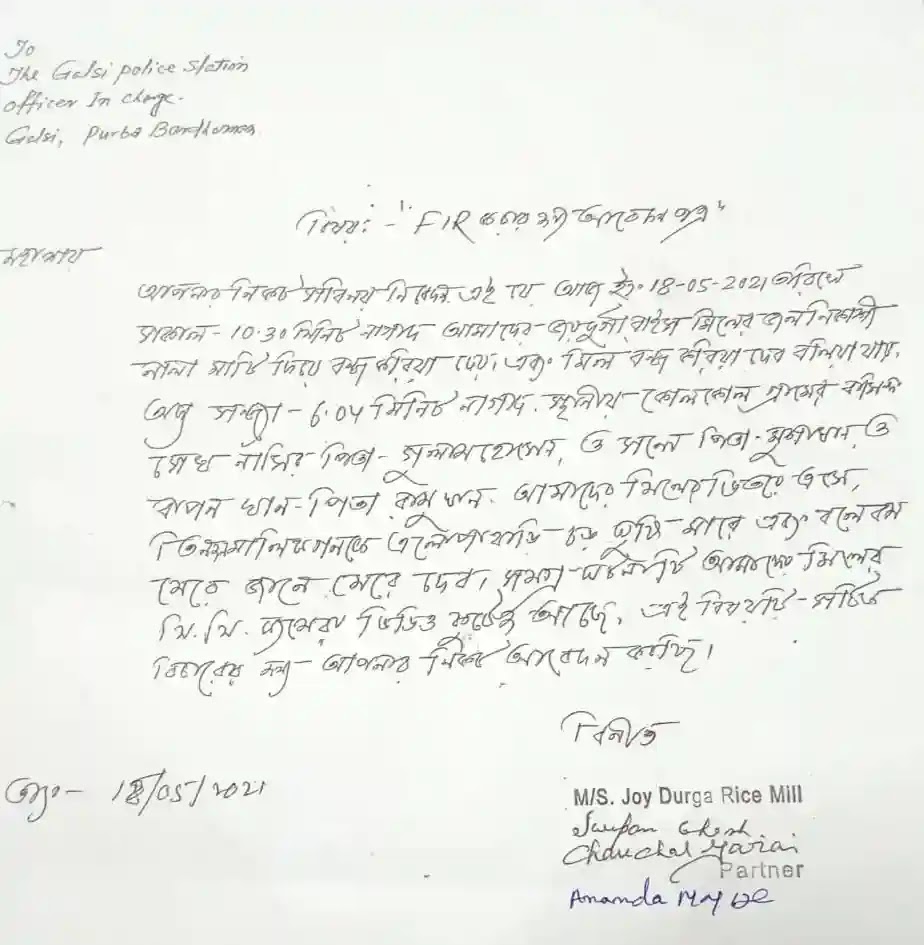 To
The Galsi police Station
officer In charge.
Galsi, Purba Bardhaman
বিষয়:- "FIR করার জন্য আবেদন পত্র"
মহাশয়
আপনার নিকট সবিনয় নিবেদন এই যে আজ ইং 18-05-2021 তারিখে
সকাল - 10.30 মিনিট নাগাদ আমাদের জয়দুর্গা রাইস মিলের জল নিকাশী
নালা মাটি দিয়ে বন্ধ করিয়া দেয়, এবং মিল বন্ধ করিয়া দেব বলিয়া যায়,
অদ্য সন্ধ্যা - 6.04 মিনিট নাগাদ, স্থানীয় কোলকোল গ্রামের বাসিন্দা
সেখ নাসির পিতা - গুলাম হোসেন, ও সলে পিতা - ও
বাপন খান - পিতা রামু খান. আমাদের মিলের ভিতরে এসে,
তিনজন মালিকগনকে এলোপাথাড়ি চড় ঘুষি মারে এবং বলে বম
মেরে জানে মেরে দেব, সমগ্র ঘটনাটি আমাদের মিলের
সি.সি. ক্যামেরা ভিডিও ফুটেই আছে, এই বিষয়টি - সঠিক
বিচারের জন্য - আপনার নিকট আবেদন করছি।
বিনীত
তাং - 18/05/2021
M/S. Joy Durga Rice Mill
Swapan Ghosh
Chanchal Garai
Partner
Ananda May De